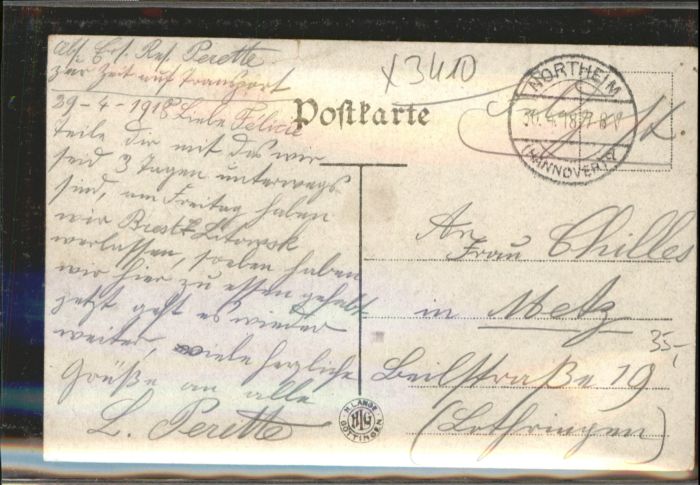 Abs. Ers. Res. Perette
zur Zeit auf Transport
29-4-1918 Liebe Félicie
teile dir mit das wir
seid 3 Tagen unterwegs
sind, am Freitag haben
wir Brest Litowsk
verlassen, soeben haben
wir hier zu essen gehalt
jetzt geht es wieder
weiter, viele herzliche
Grüße an alle
L. Perette
x3410
Postkarte
NORTHEIM
(HANNOVER)
An
Frau Chilles
in Metz
35,-
Beilstraße 19
(Lothringen)
H. LANGE
HLG
GÖTTINGEN